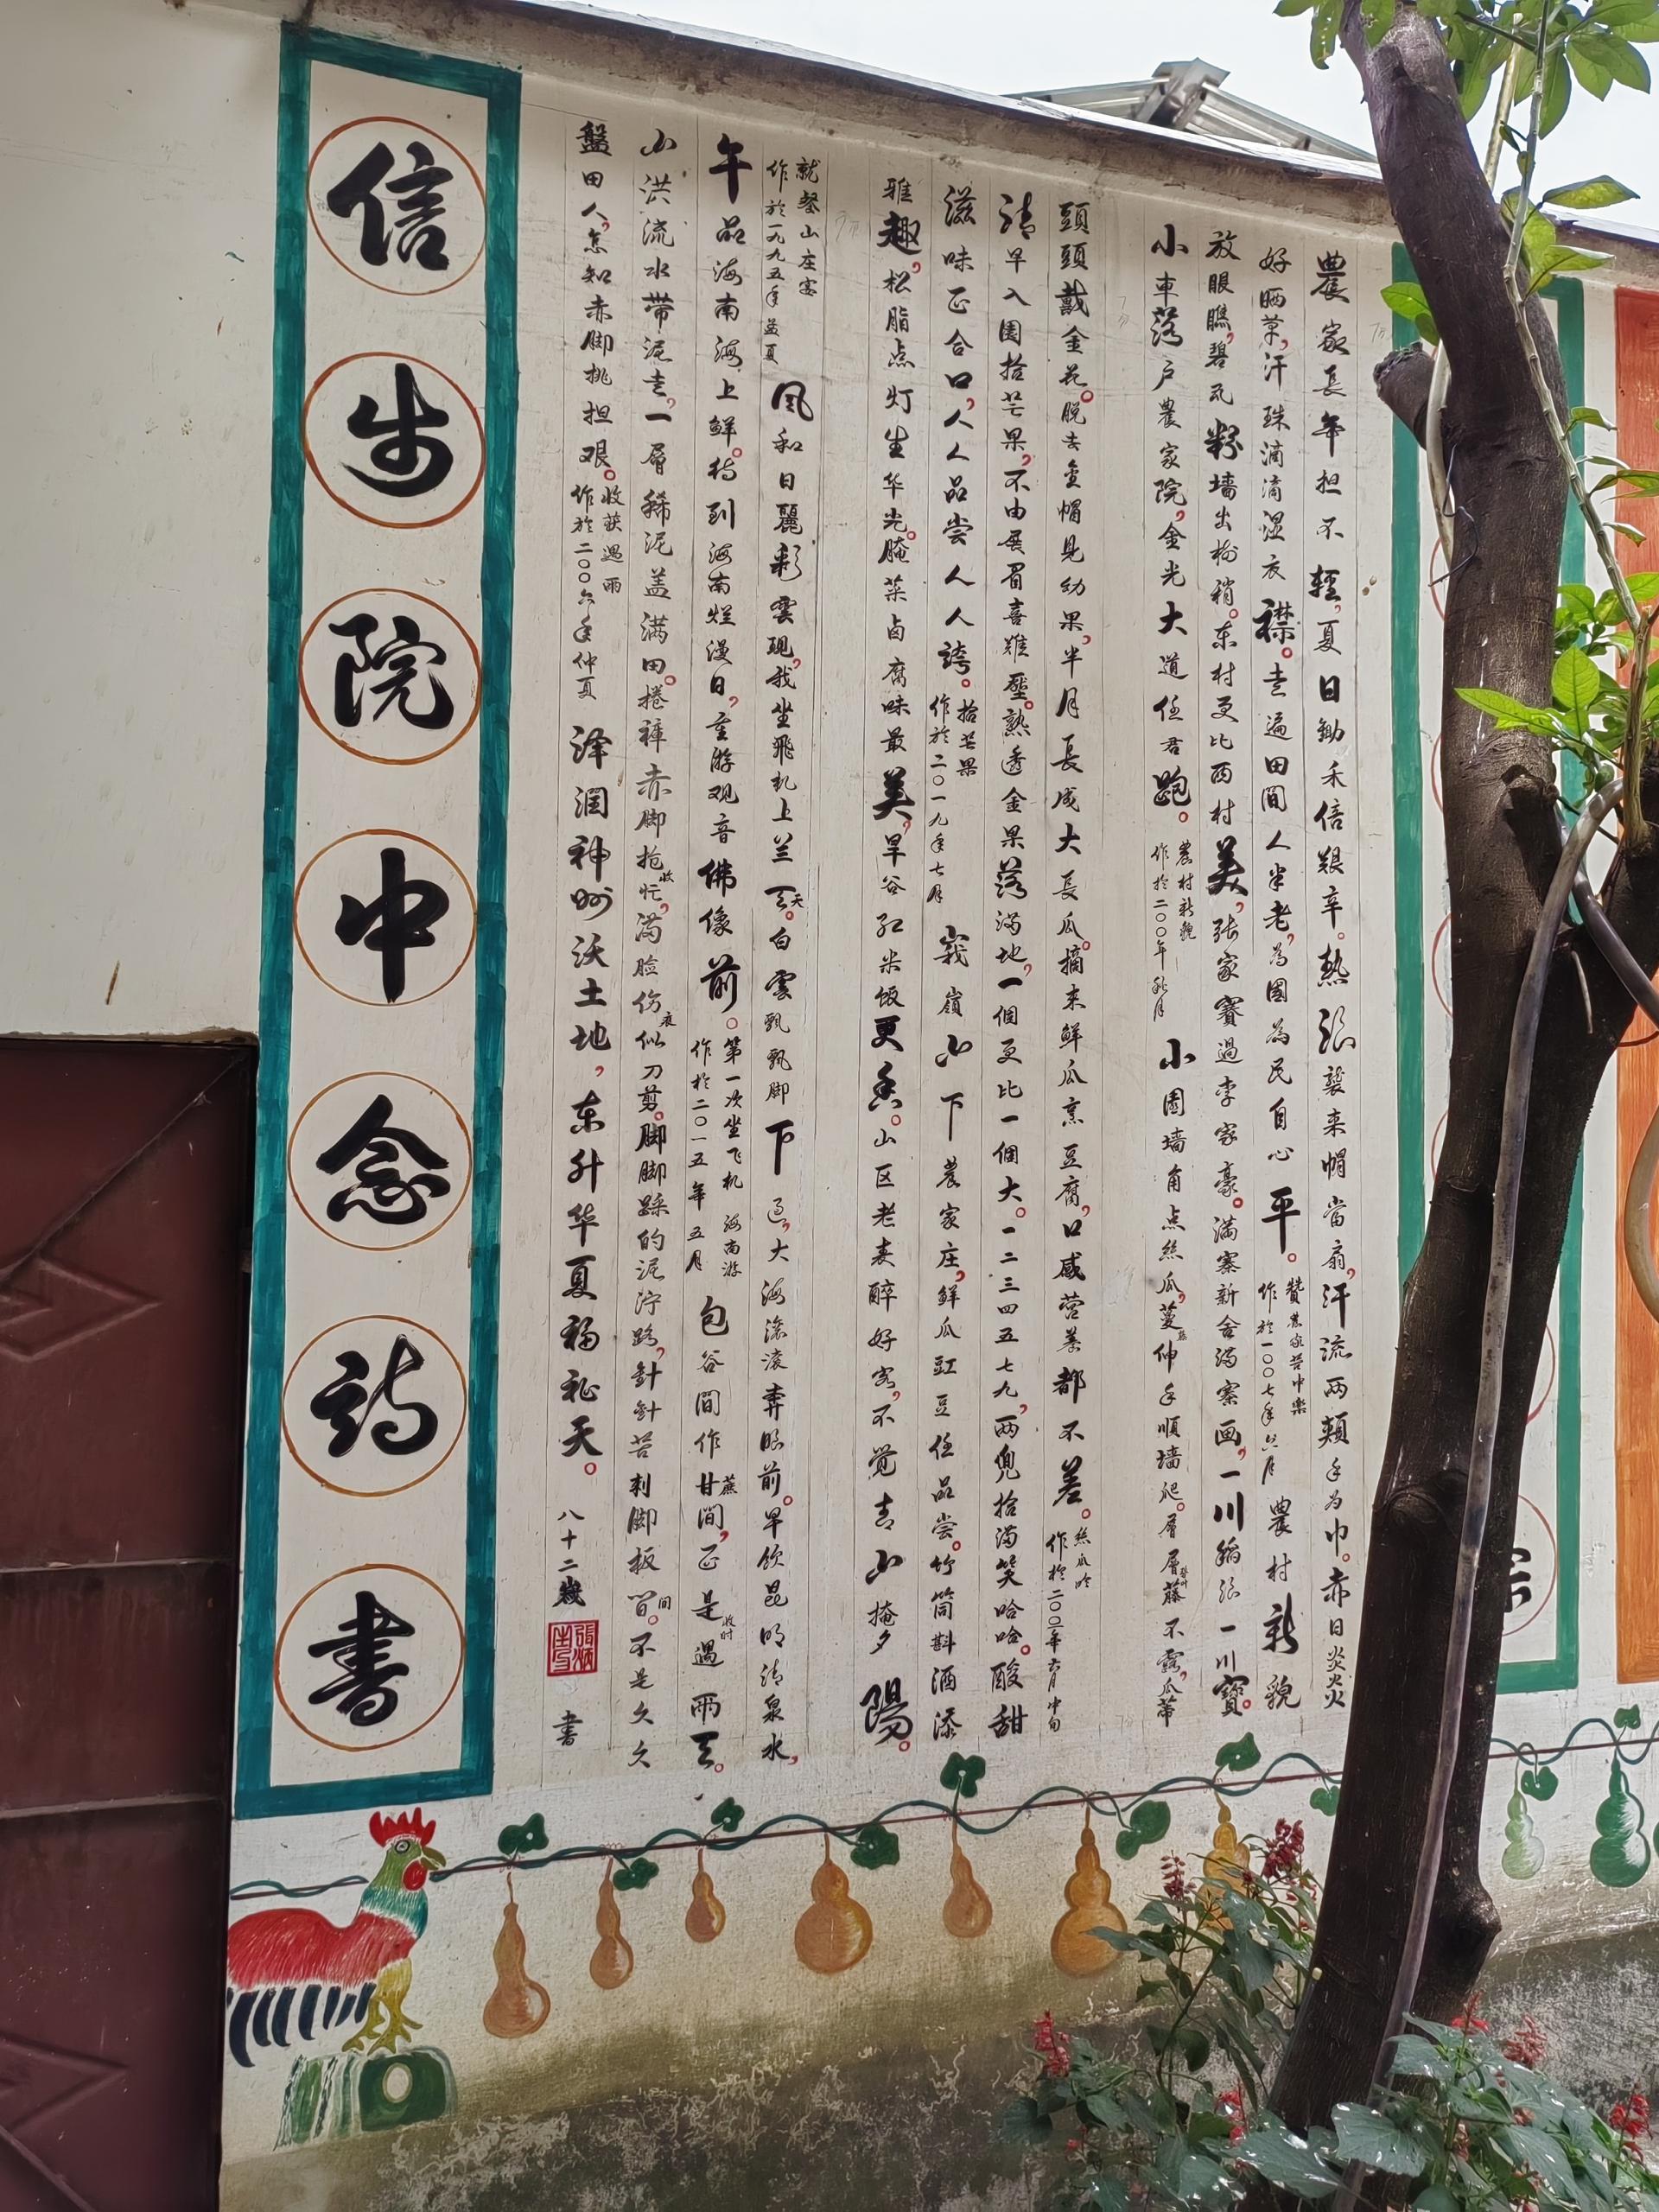 農家長年担不輕，夏日鋤禾倍艱辛。熱浪襲来帽當扇，汗流两頰手为巾。赤日炎炎
好晒草，汗珠滴滴湿衣襟。走遍田間人半老，為國為民自心平。
贊農家苦中樂
農村新貌
放眼瞧，碧瓦粉墙出樹稍。东村更比西村美，张家賽過李家豪。满寨新舍满寨画，一川稻浪一川寶。
小車落户農家院，金光大道任君跑。
農村新貌
作於二〇〇年秋月
小園墙角点絲瓜，蔓伸手順墙爬。層層藤不露瓜蒂
頭頭戴金花。脱去金帽見幼果，半月長成大長瓜。摘来鲜瓜烹豆腐，口感营养都不差。
絲瓜吟
作於二〇〇年六月中旬
清早入園拾芒果，不由展眉喜難壓。熟透金果落满地，一個更比一個大。一二三四五七九，两兜拾满笑哈哈。酸甜
滋味正合口，人人品尝人人誇。
拾芒果
作於二〇一九年七月
峩嶺山下農家庄，鲜瓜豇豆任品尝。竹筒斟酒添
雅趣，松脂点灯生华光。腌菜卤腐味最美，旱谷红米饭更香。山区老表醉好客，不觉青山掩夕陽。
就餐山庄宴
作於一九九五年孟夏
風和日麗彩雲現，我坐飛机上兰天。白雲飘飘脚下过，大海滚滚奔眼前。早饮昆明清泉水，
午品海南海上鲜。待到海南烂漫日，重游观音佛像前。
第一次坐飞机 海南游
作於二〇一五年五月
包谷間作甘蔗間，正是收时遇雨天。
山洪流水带泥走，一層稀泥盖满田。捲裤赤脚抢收忙，满脸伤痕似刀剪。脚脚踩的泥泞路，針針苦刺脚板间。不是久久
盤田人，怎知赤脚挑担艰。
收获遇雨
作於二〇〇六年仲夏
泽润神州沃土地，东升华夏福祉天。
八十二歲
書
信步院中念詩書